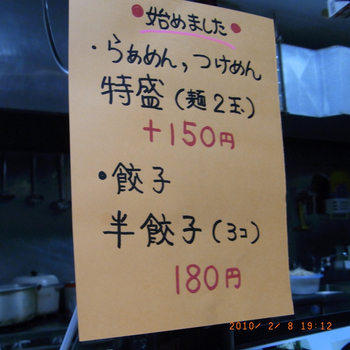 ●始めました●
・らぁめん,つけめん
特盛(麺2玉)
+150円
・餃子
半餃子(3コ)
180円
2010/ 2/ 8 19:12